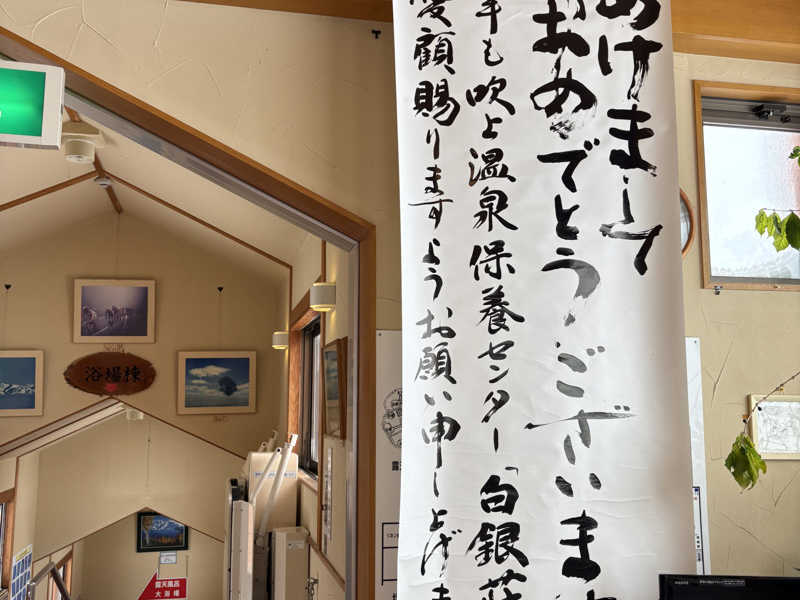 あけまして
おめでとうございま
年も吹上温泉保養センター「白銀荘
愛顧賜りますようお願い申し上げま
浴場棟
露天風呂
大浴場